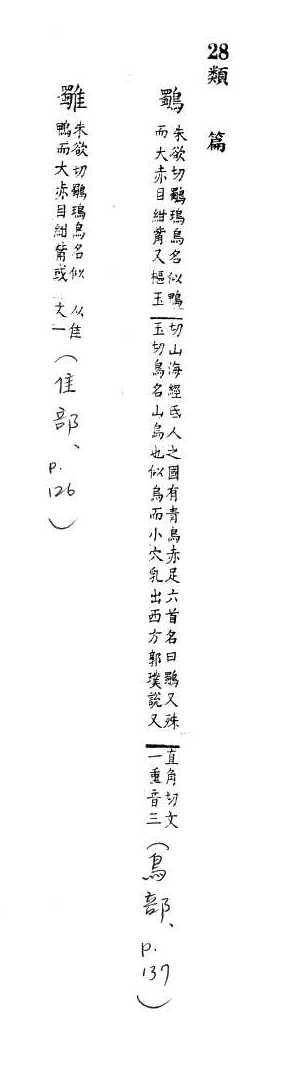 28類 篇
鸀
朱欲切鸀瑦鳥名似鴨
而大赤目紺觜又樞玉
切山海經氐人之國有青鳥赤足六首名曰鸀又殊
玉切鳥名山烏也似烏而小穴乳出西方郭璞說又
直角切文
一重音三
(鳥部、p.137)
雡
朱欲切鸀瑦鳥名似
鴨而大赤目紺觜或
从隹
文一
(隹部、p.126)